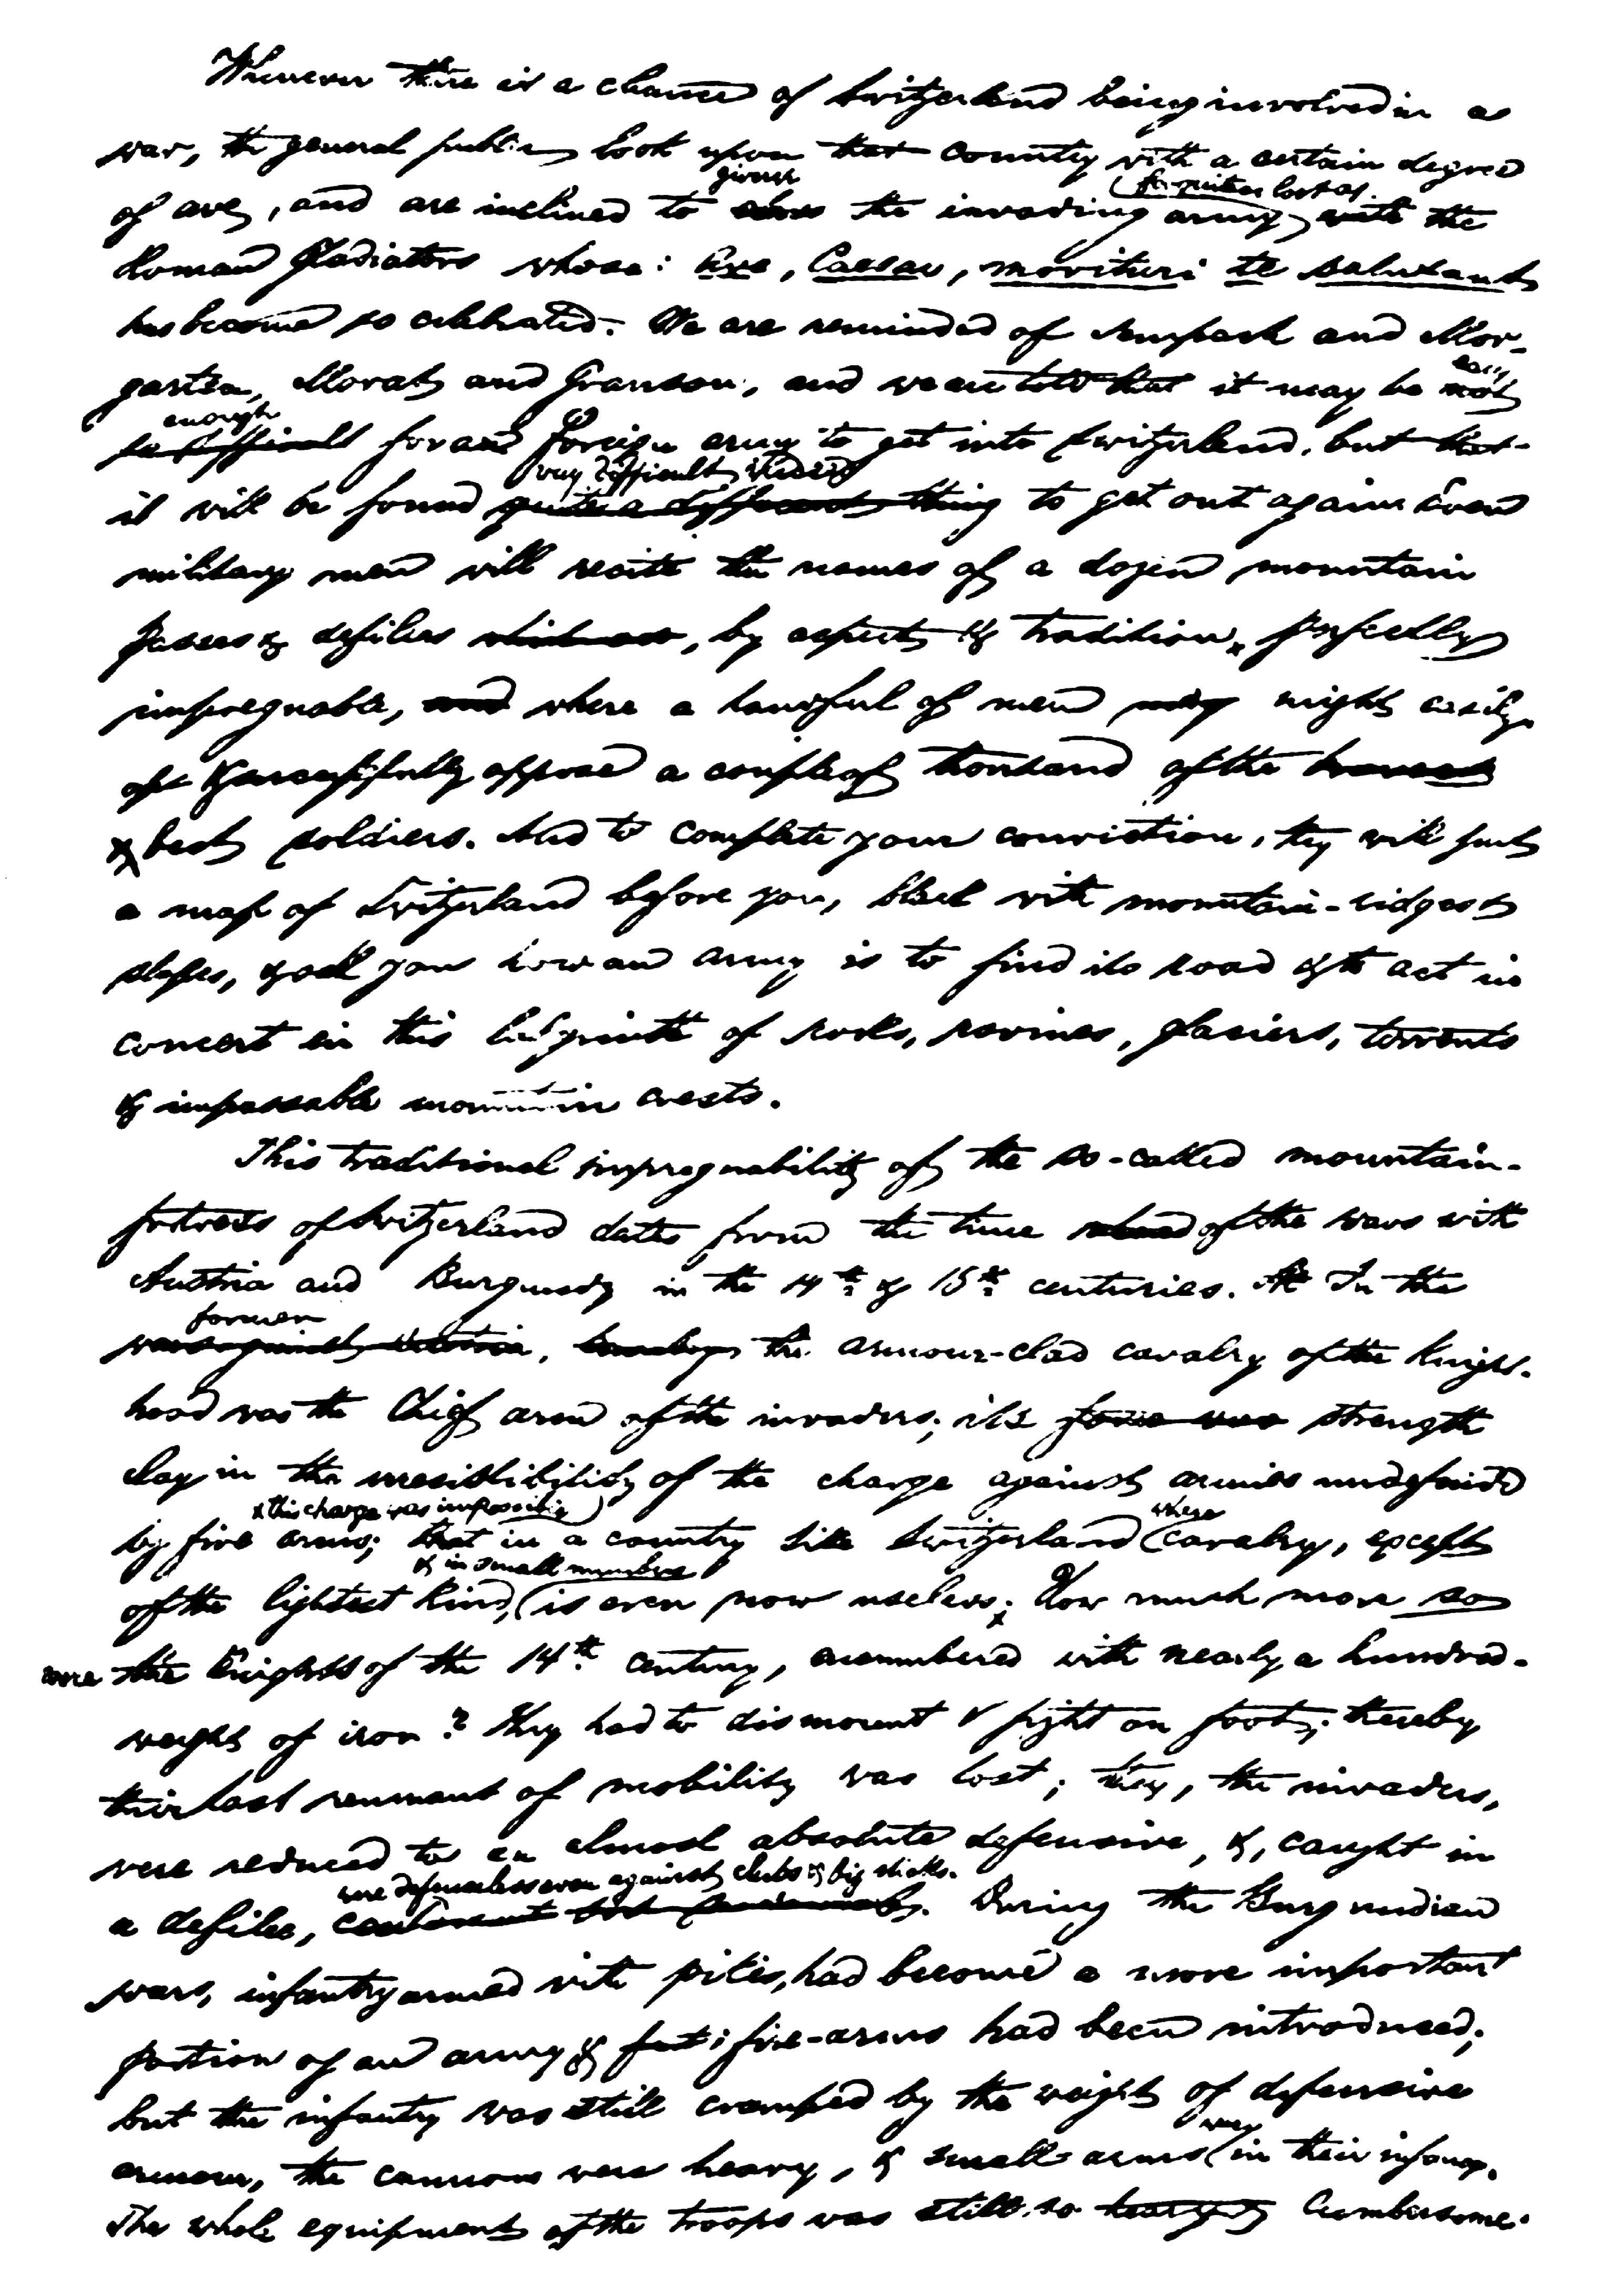 Whenever there is a chance of Switzerland being involved in a
war, the general public look upon that country with a certain degree
of awe, and are inclined to give the invading army for quite as lost as the
Roman Gladiators whose: Ave, Caesar, morituri te salutant
has become so celebrated. We are reminded of Sempach and Mor-
garten, Morat and Granson, and we are told that it may be easy
enough for a foreign army to get into Switzerland, but that
it will be found very difficult indeed to get out again. Even
military men will recite the names of a dozen mountain
passes & defiles which are, by aspect & tradition, perfectly
impregnable, and where a handful of men may might easily
& successfully oppose a couple of thousand of the bravest
& best soldiers. And to complete your conviction, they will put
a map of Switzerland before you, black with mountain-ridges &
slopes, & ask you how an army is to find its road & to act in
concert in this labyrinth of rocks, ravines, glaciers, torrents
& impassable mountain crests.
This traditional impregnability of the so-called mountain-
fortress of Switzerland dates from the time of the wars with
Austria and Burgundy in the 14th & 15th centuries. In the
former
wars against Austria, the armour-clad cavalry of the Knight-
hood was the chief arm of the invaders; its force was strength
lay in the irresistibility of the charge against armies undefended
& this charge was impossible
by fire arms; that in a country like Switzerland where cavalry, except
of the lightest kind, & in small numbers is even now useless; How much more so
were the Knights of the 14th century, encumbered with nearly a hundred-
weight of iron? They had to dismount & fight on foot; thereby
their last remnant of mobility was lost; they, the invaders,
were reduced to an almost absolute defensive, &, caught in
were defenceless even against clubs & big sticks.
a defile, could not. During the Burgundian
wars, infantry armed with pikes, had become a more important
portion of an army & fire-arms had been introduced;
but the infantry was still cramped by the weight of defensive
armour, the cannons were heavy, & small arms were in their infancy.
The whole equipment of the troops was still so heavy cumbersome